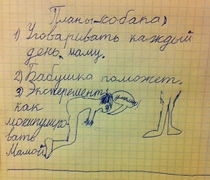 Планы собака)
1) Уговаривать каждый
день маму.
2) Бабушка поможет.
3) Эксперемент
как
Мамой